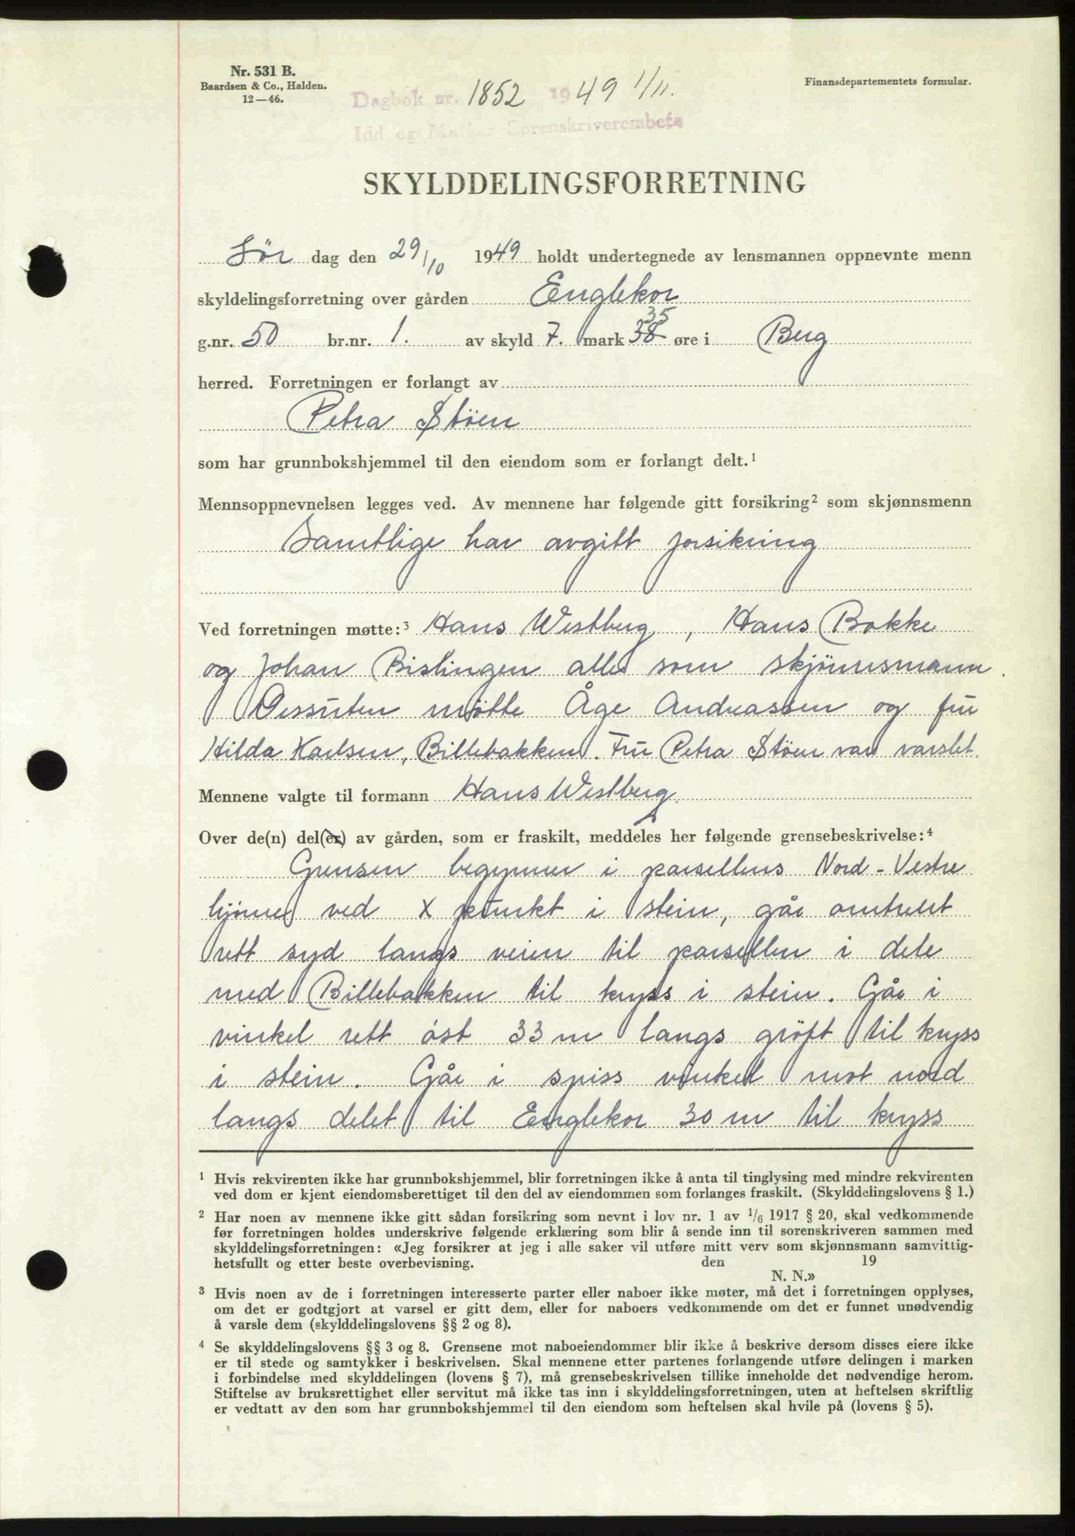 Nr. 531 B.
Baardsen & Co., Halden.
12—46.
Finansdepartementets formular.
Dagbok nr. 1852 1949 1/11.
Idd og Marker Sorenskriverembete
SKYLDDELINGSFORRETNING
Lör dag den 29/10 1949 holdt undertegnede av lensmannen oppnevnte menn
skyldelingsforretning over gården Englekor
g.nr. 50 br.nr. 1. av skyld 7. mark 38 35 øre i Berg
herred. Forretningen er forlangt av
Petra Stöen
som har grunnbokshjemmel til den eiendom som er forlangt delt.¹
Mennsoppnevnelsen legges ved. Av mennene har følgende gitt forsikring² som skjønnsmenn
Samtlige har avgitt forsikring
Ved forretningen møtte:³ Hans Westberg, Hans Bakke
og Johan Bislingen alle som skjönnsmenn.
Dessuten mötte Åge Andreassen og fru
Hilda Karlsen, Billebakken. Fru Petra Stöen var varslet.
Mennene valgte til formann Hans Westberg.
Over de(n) del(er) av gården, som er fraskilt, meddeles her følgende grensebeskrivelse:⁴
Grensen begynner i parsellens Nord-Vestre
hjörne ved x punkt i stein, går omtrent
rett syd langs veien til parsellen i dele
med Billebakken til kryss i stein. Går i
vinkel rett öst 33 m langs gröft til kryss
i stein. Går i spiss vinkel mot nord
langs delet til Englekor 30 m til kryss
¹ Hvis rekvirenten ikke har grunnbokshjemmel, blir forretningen ikke å anta til tinglysing med mindre rekvirenten
ved dom er kjent eiendomsberettiget til den del av eiendommen som forlanges fraskilt. (Skylddelingslovens § 1.)
² Har noen av mennene ikke gitt sådan forsikring som nevnt i lov nr. 1 av 1/6 1917 § 20, skal vedkommende
før forretningen holdes underskrive følgende erklæring som blir å sende inn til sorenskriveren sammen med
skylddelingsforretningen: «Jeg forsikrer at jeg i alle saker vil utføre mitt verv som skjønnsmann samvittig-
hetsfullt og etter beste overbevisning. den 19
N. N.»
³ Hvis noen av de i forretningen interesserte parter eller naboer ikke møter, må det i forretningen opplyses,
om det er godtgjort at varsel er gitt dem, eller for naboers vedkommende om det er funnet unødvendig
å varsle dem (skylddelingslovens §§ 2 og 8).
⁴ Se skylddelingslovens §§ 3 og 8. Grensene mot naboeiendommer blir ikke å beskrive dersom disses eiere ikke
er til stede og samtykker i beskrivelsen. Skal mennene etter partenes forlangende utføre delingen i marken
i forbindelse med skylddelingen (lovens § 7), må grensebeskrivelsen tillike inneholde det nødvendige herom.
Stiftelse av bruksrettighet eller servitut må ikke tas inn i skylddelingsforretningen, uten at heftelsen skriftlig
er vedtatt av den som har grunnbokshjemmel til den eiendom som heftelsen skal hvile på (lovens § 5).